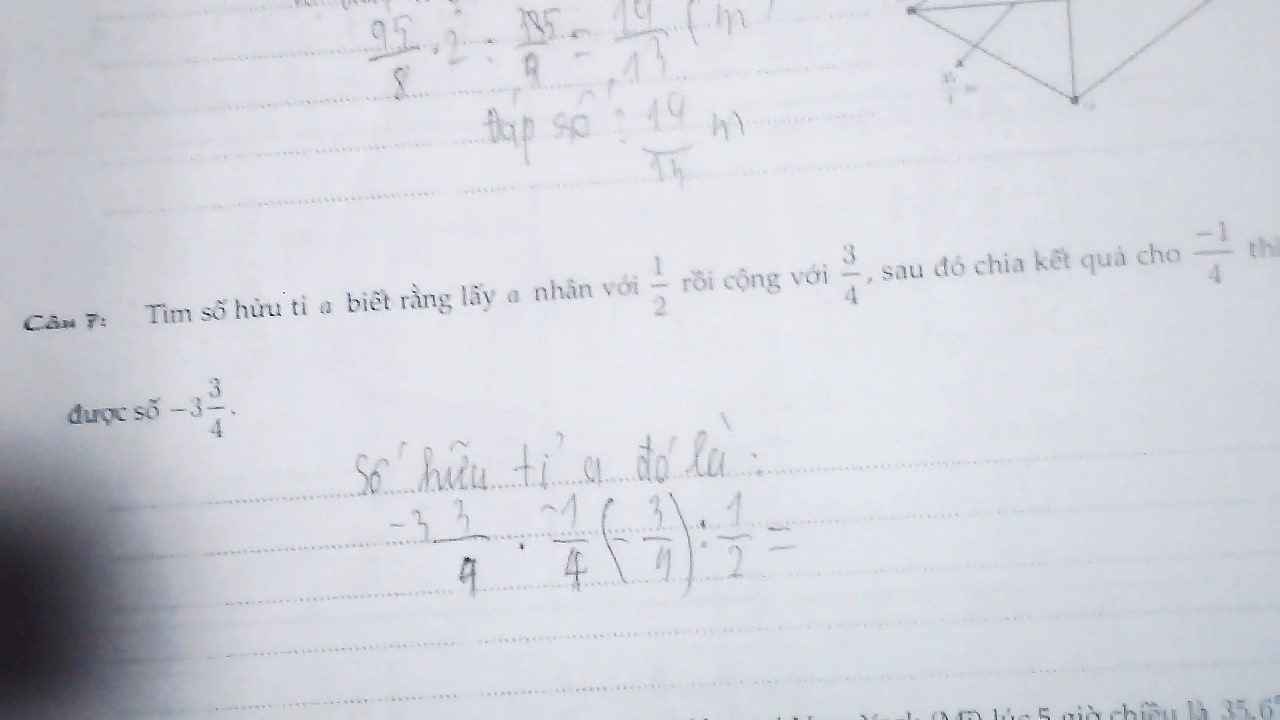 95/8 . 2 : 385/9 = 19/13 (m
đáp số : 19/14 m
Câu 7: Tìm số hữu tỉ a biết rằng lấy a nhân với 1/2 rồi cộng với 3/4, sau đó chia kết quả cho -1/4 th
được số -3 3/4.
số hữu tỉ a đó là :
-3 3/4 . -1/4 (- 3/4) : 1/2 =
lúc 5 giờ chiều là 35,6